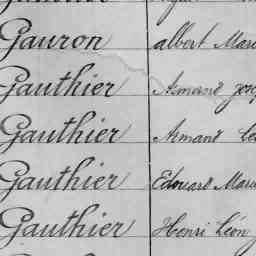 Gauron albert Mari
Gauthier Armand Jose
Gauthier Armand Le
Gauthier Edouard Marie
Gauthier Henri Léon